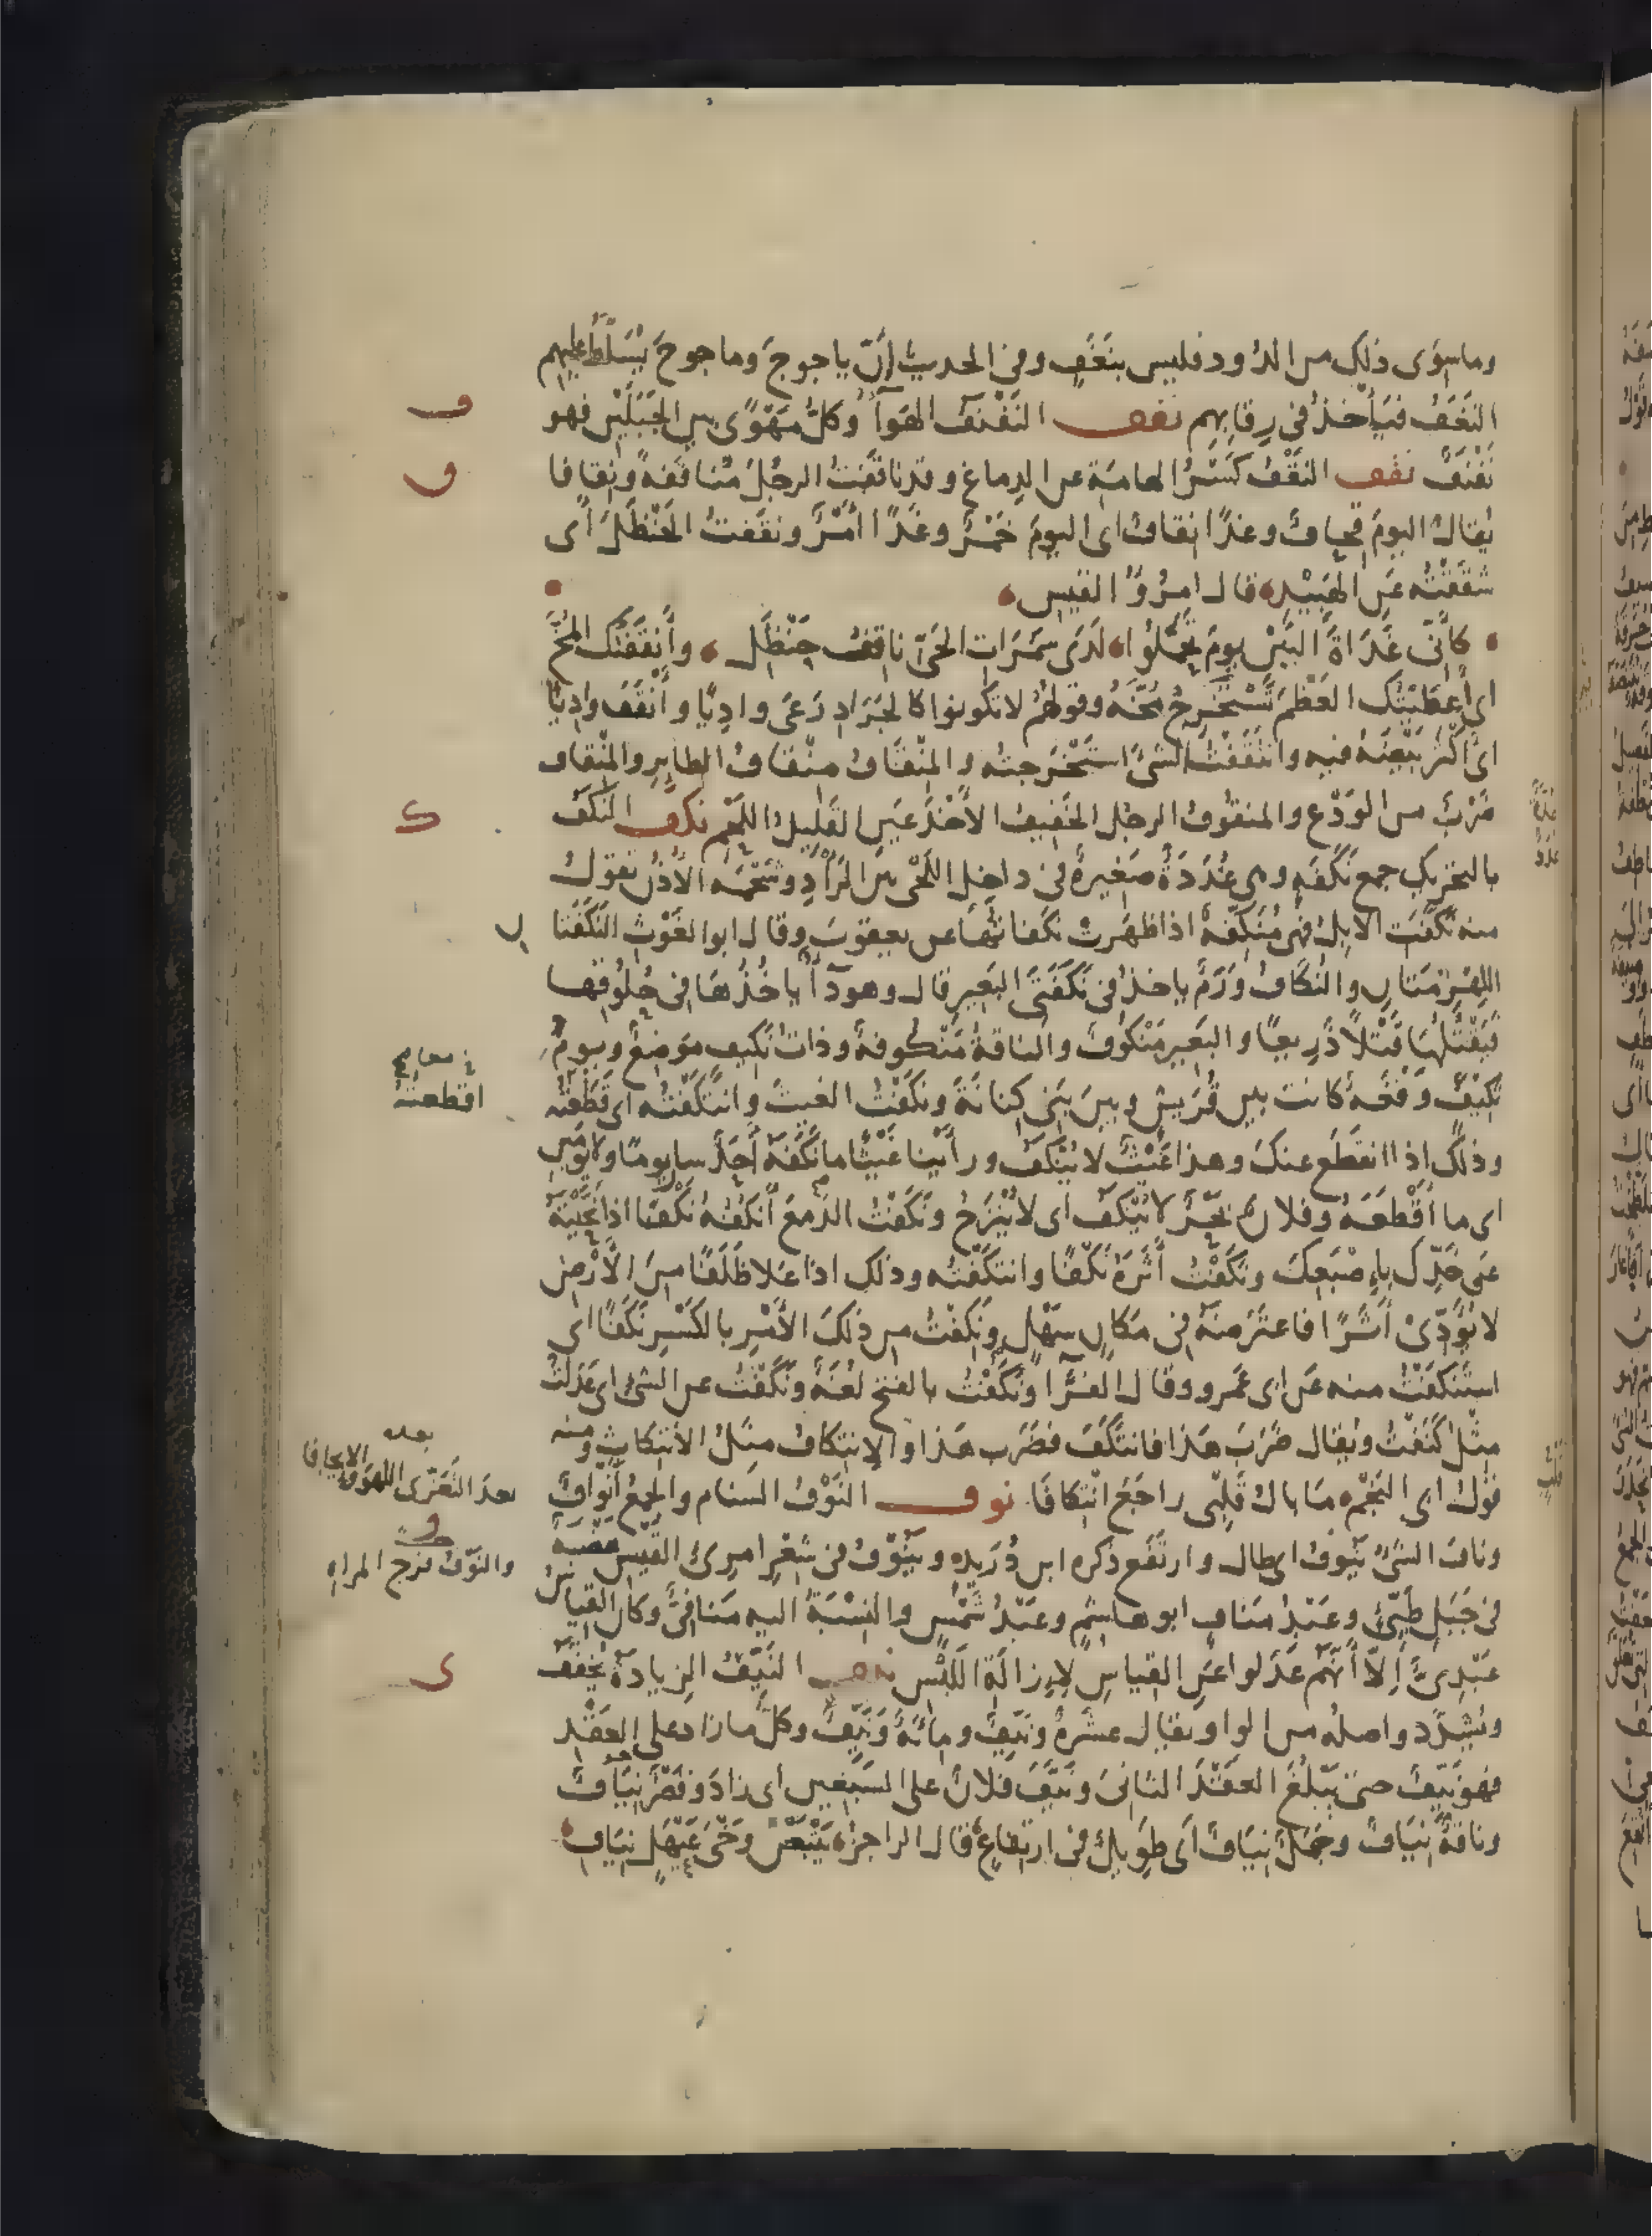 وما سِوَى ذلك من الدُود فليس بنَغَفٍ وفي الحديث إنّ ياجوجَ وماجوجَ يُسَلَّطُ عليهم
النَغَفُ فيَأْخُذُ في رِقابِهِم نفنف النَفْنَفُ الهَوآءُ وكلُّ مَهْوًى بين الجَبَلَيْنِ فهو
نَفْنَفٌ نقف النَقْفُ كَسْرُ الهامَةِ عن الدِماغِ وقد ناقَفْتُ الرجُلَ مُناقَفَةً ونِقافا
يُقالُ اليومَ قِحافٌ وغدًا نِقافٌ اى اليومَ خَمْرٌ وغَدًا امْرٌ ونقَفتُ الحَنْظَلَ أى
شَقَقْتُه عَنِ الهَبِيْدِ قال امرُؤُ القيس
كأنّى غَدَاةَ البَيْنِ يومَ تَحَمَّلُوا لَدَى سَمُرَاتِ الحَيّ ناقِفُ حَنْظَلِ وأَنقَفْتُك المُخَّ
اى أعطَيْتُك العَظْمَ تَسْتَخْرِجُ مُخَّهُ وقولهُمْ لا تكونوا كالجَرَادِ رَعَى وادِيًا وأَنْقَفَ وادِيًا
اى أكثَرَ بَيْضَهُ فيه وانتَقَفْتُ الشئَ استَخْرَجتُه والمِنْقَافُ مِنْقارُ الطايرِ والمِنْقاف
ضَرْبٌ من الوَدَعِ والمنقُوفُ الرجُل الخَفِيفُ الأَخْذَعَيْنِ القَلِيلُ اللَحْمِ نكف النَكَف
بالتحرِيكِ جمع نَكَفَةٍ وهى غُدَدَةٌ صَغِيرةٌ في داخِلِ اللَحْىِ بيْنَ الرَأْدِ وشَحْمَةِ الأُذُنِ تقول
منه نَكِفَت الابِلُ فهى مُنَكِّفَةٌ اذا ظهَرت نَكَفاتُها عن يعقوبَ وقال ابوالغَوْثِ النَكَفَتا
اللِهْزِمَتانِ والنُكَافُ وَرَمٌ ياخذُ في نَكَفَتَىِ البَعِيرِ قال وهو دآءٌ ياخُذُها في حُلُوقِها
فيَقْتُلُها قَتْلاً ذَرِيعًا والبَعِيرُ مَنْكُوفٌ والناقةُ مَنْكُوفةٌ وذاتُ نَكِيف موضعٌ ويومُ
نَكِيفٍ وَقْعَةٌ كانت بين قُرَيشٍ وبينَ بَنِى كِنانةَ ونكَفْتُ الغيثَ وانتَكَفْتُه اى قَطَعْتُه
وذلك اذا انقَطَع عنكَ وهذا غَيْثٌ لا يُنْكَفُ ورأَيْنا غَيْثًا ما نَكَفَهُ أحَدٌ سار يومًا ولا يومَيْنِ
اى ما أقْطَعَهُ وفلانٌ بَحْرٌ لا يُنْكَفُ اى لا يُنْزَحُ ونَكَفْتُ الدَمْعَ أنكُفُهُ نَكْفًا اذا نَحَّيْتَهُ
عَن خَدِّكَ بإِصْبَعِكَ ونَكَفْتُ أَثَرَهُ نَكْفًا وانتكَفْتُه وذلك اذا عَلا ظَلَفًا منَ الأَرْضِ
لا يُؤَدِّىْ أَثَرًا فاعتَرَضتَهُ في مَكانٍ سَهْلٍ ونَكِفْتُ من ذلكَ الأَمْرِ بالكَسْرِ نَكَفًا اى
استَنكَفْتُ منه عَن ابى عَمرو وقال الفَرَّآءُ ونَكَفْتُ بالفتح لغَةٌ ونَكَفْتُ عن الشئِ اى عَدَلتُ
مِثْلُ كَنَفْتُ ويُقال ضَرَبَ هَذا فانتَكَفَ فضَرَب هَذا والانتِكافُ مثلُ الانتكاثِ ومنه
قولُ ابى النَجْمِ ما بالُ قَلْبٍ راجَعَ انْتِكافَا نوف النَوْفُ السَنام والجمعُ أَنْوافٌ
ونافَ الشئُ يَنُوفُ اى طال وارتَفَع ذكره ابن دُرَيدٍ ويَنُوْفُ في شِعْرِ امرِئِ القَيْسِ هضبة
في جَبَلِ طَيّئٍ وعَبْدُ مَنافٍ ابو هاشِمٍ وعَبْدُ شَمْسٍ والنِسْبَةُ اليه مَنافِىٌّ وكان القِياسُ
عَبْدِىٌّ إلاّ أنَّهُم عَدَلوا عَنِ القِياسِ لإِزالَةِ اللَبْسِ نيف النَيِّفُ الزِيادَةُ يُخَفَّفُ
ويُشَدَّد واصلُه من الواو يُقال عشَرةٌ ونَيِّفٌ ومائَةٌ ونَيِّفٌ وكلُّ ما زاد على العَقْدِ
فهو نَيِّفٌ حتى يَبْلُغَ العَقْدَ الثانىَ ونَيَّفَ فلانٌ على السَبْعِين اى زادَ وقَصْرٌ نِيَافٌ
وناقةٌ نِيَافٌ وجَمَلٌ نِيَافٌ أى طَوِيلٌ في ارتِفاعٍ قال الراجز يَتْبَعْنَ وَخْىَ عَيْهَلٍ نِيَافِ
ف
ف
ك
ل
اقطعته
بعده
بعد التَعَزّى اللهوَ والايجافا
و
والنَوْف فرج المراه
ى